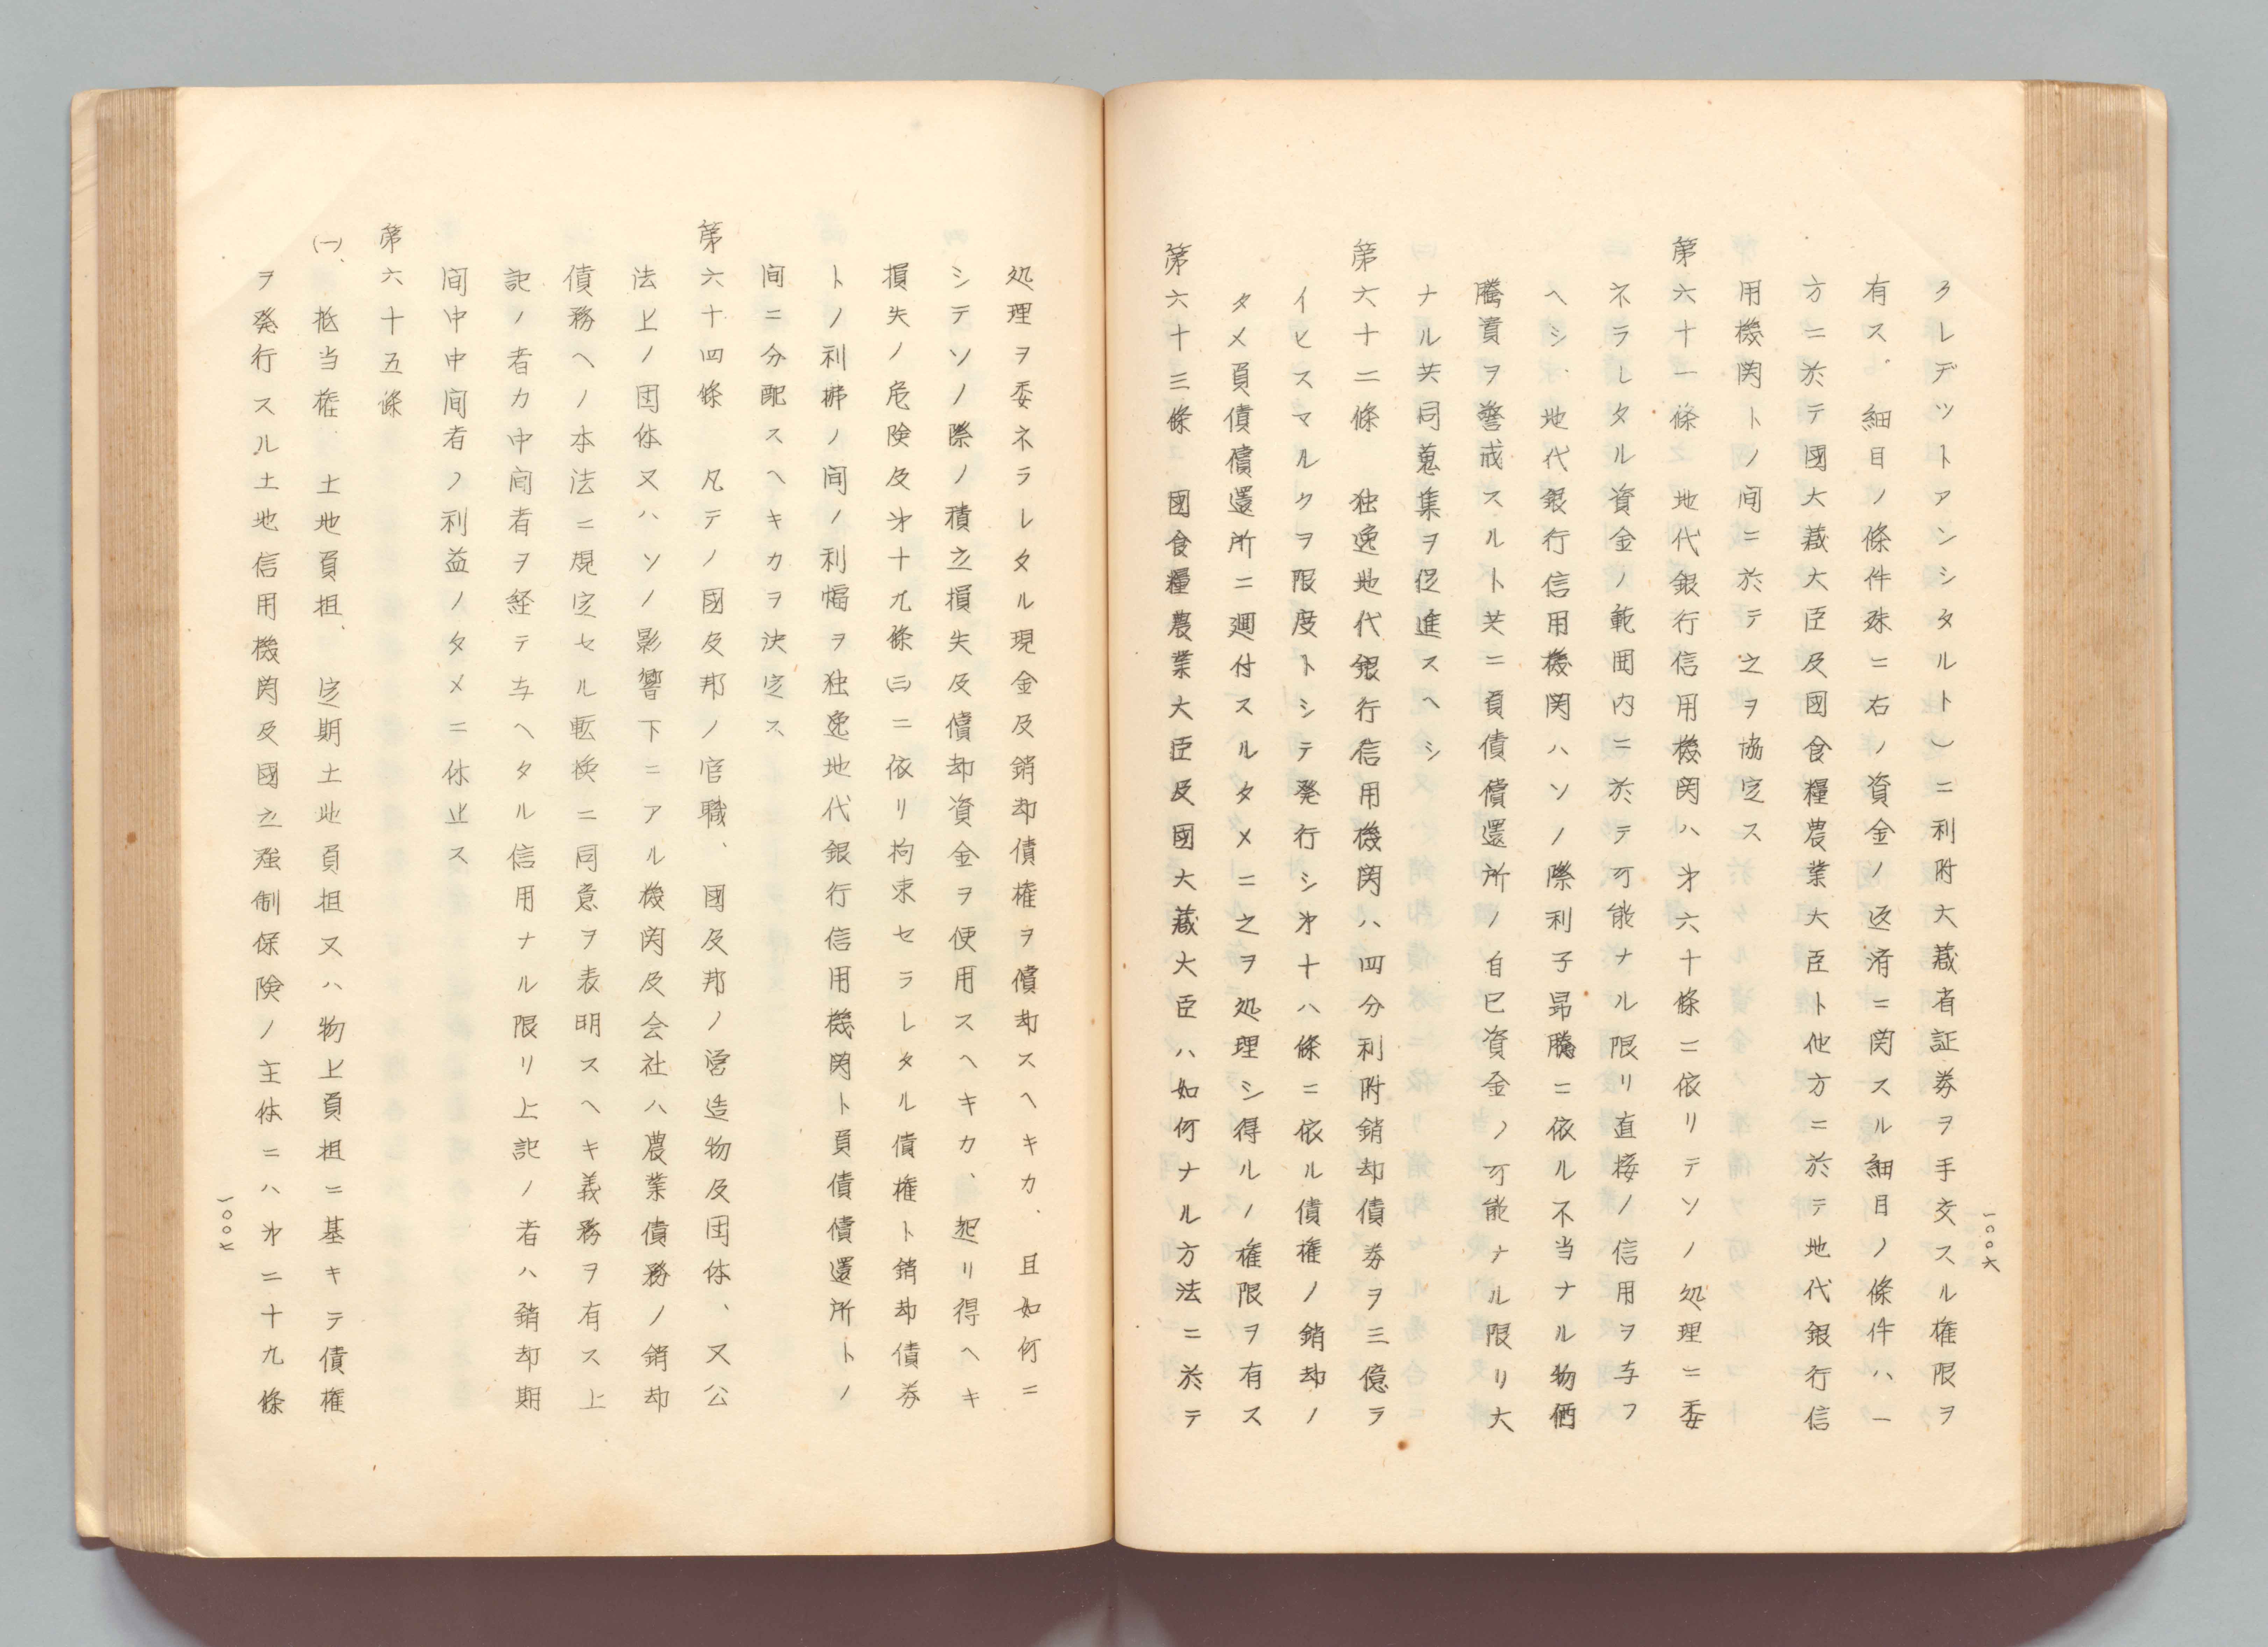 一〇〇六
クレデツトアンシタルト)ニ利附大蔵省証券ヲ手交スル権限ヲ
有ス、細目ノ條件殊ニ右ノ資金ノ返済ニ関スル細目ノ條件ハ一
方ニ於テ國大蔵大臣及國食糧農業大臣ト他方ニ於テ地代銀行信
用機関トノ間ニ於テ之ヲ協定ス
第六十一條 地代銀行信用機関ハ第六十條ニ依リテソノ処理ニ委
ネラレタル資金ノ範囲内ニ於テ可能ナル限リ直接ノ信用ヲ与フ
ヘシ、地代銀行信用機関ハソノ際利子昂騰ニ依ル不当ナル物価
騰貴ヲ警戒スルト共ニ負債償還所ノ自己資金ノ可能ナル限リ大
ナル共同蒐集ヲ促進スヘシ
第六十二條 独逸地代銀行信用機関ハ四分利附銷却債券ヲ三億ラ
イヒスマルクヲ限度トシテ発行シ第十八條ニ依ル債権ノ銷却ノ
タメ負債償還所ニ廻付スルタメニ之ヲ処理シ得ルノ権限ヲ有ス
第六十三條 國食糧農業大臣及國大蔵大臣ハ如何ナル方法ニ於テ
処理ヲ委ネラレタル現金及銷却債権ヲ償却スヘキカ、且如何ニ
シテソノ際ノ積立損失及償却資金ヲ使用スヘキカ、起リ得ヘキ
損失ノ危険及第十九條(三)ニ依リ拘束セラレタル債権ト銷却債券
トノ利拂ノ間ノ利幅ヲ独逸地代銀行信用機関ト負債償還所トノ
間ニ分配スヘキカヲ決定ス
第六十四條 凡テノ國及邦ノ官職、國及邦ノ営造物及団体、又公
法上ノ団体又ハソノ影響下ニアル機関及会社ハ農業債務ノ銷却
債務ヘノ本法ニ規定セル転換ニ同意ヲ表明スヘキ義務ヲ有ス上
記ノ者カ中間者ヲ経テ与ヘタル信用ナル限リ上記ノ者ハ銷却期
間中中間者ノ利益ノタメニ休止ス
第六十五條
(一)、抵当権、土地負担、定期土地負担又ハ物上負担ニ基キテ債権
ヲ発行スル土地信用機関及國立強制保険ノ主体ニハ第二十九條
一〇〇七